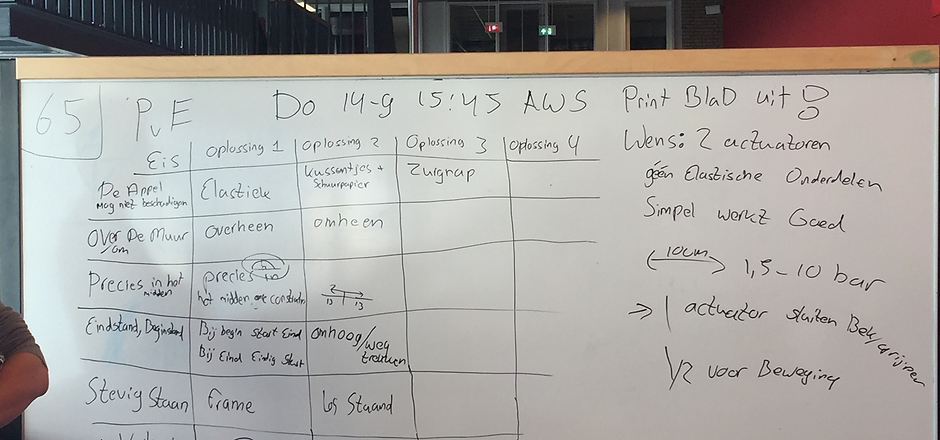 65
PvE
Do 14-9 15:45 AWS
Print Blad uit !
Eis
Oplossing 1
Oplossing 2
Oplossing 3
Oplossing 4
De Appel
mag niet beschadigen
Elastiek
kussentjes +
Schuurpapier
Zuignap
Over De Muur
/om
overheen
omheen
Precies in het
midden
precies in
het midden
2
13 13
Eindstand, Beginstand
Bij begin start Eind
Bij Eind Eindig Start
omhoog/weg
trekken
Stevig Staan
frame
los Staand
Wens: 2 actuatoren
géén Elastische Onderdelen
Simpel werkt Goed
10cm
1,5-10 bar
→ 1 actuator sluiten Bek/grijper
1/2 voor Beweging